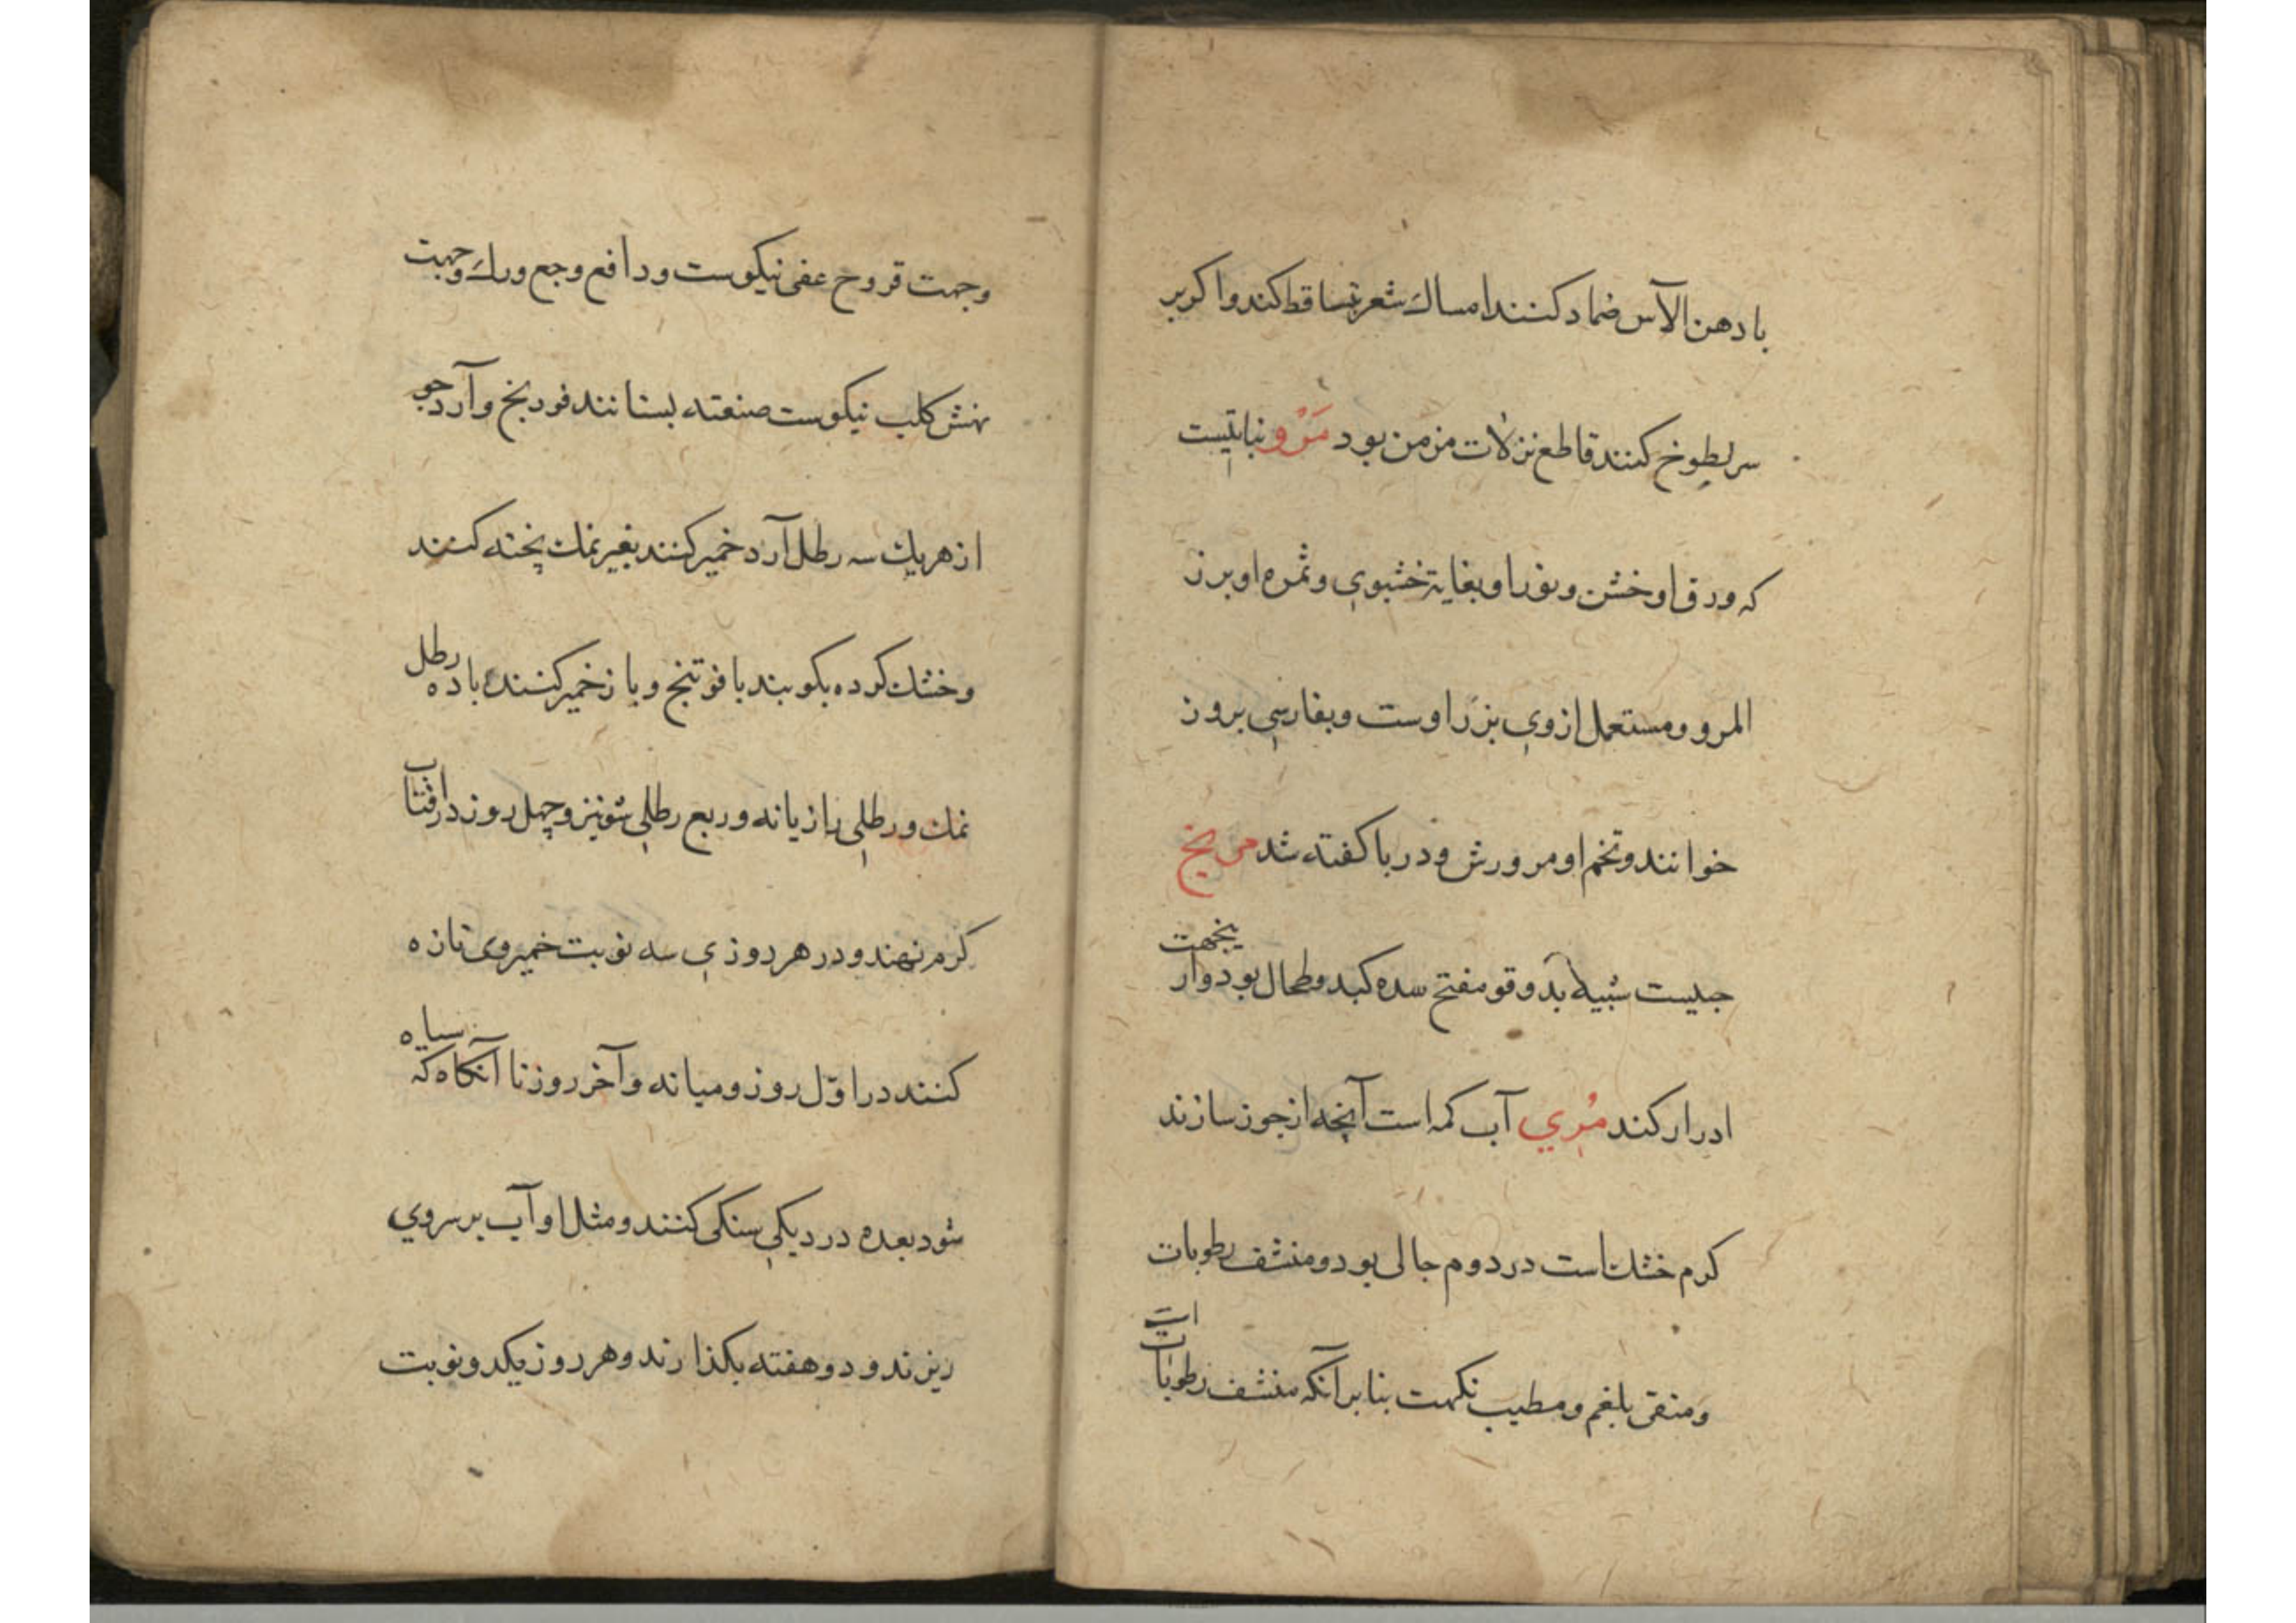 بادهن الآس ضماد كنند امساك شعر تساقط كند واكر بر
سر لطوخ كنند قاطع نزلات مزمن بود مَرْو نباتيست
كه ورق او خشن ونور او بغايت خشبوي وثمره او بزر
المرو ومستعمل از وي بزر اوست وبفارسي برور
خوانند وتخم او مرورش ودر با كفته شد مريخ
جبليست شبيه بدوقو مفتح سده كبد وطحال بود وار يجهت
ادرار كند مُرِي آب كمه است آنچه از جوز سازند
كرم خشك است در دوم جالى بود ومنشف رطوبات
ومنقى بلغم ومطيب نكهت بنا بر آنكه منشف رطوبات است
وجهت قروح عفن نيكوست ودافع وجع ورك وجهت
نهش كلب نيكوست صنعته بستانند فودنج وآرد جو
از هريك سه رطل آرد خمير كنند بغير نمك پخته كنند
وخشك كرده بكوبند با فوتنج وباز خمير كنند با ده رطل
نمك ورطلي رازيانه وربع رطلي شونيز وچهل روز در آفتاب
كرم نهند ودر هر روزي سه نوبت خمير وى تازه
كنند در اوّل روز وميانه وآخر روز تا آنكاه كه سياه
شود بعده در ديكي سنكى كنند ومثل او آب بر سر وي
ريزند ودو هفته بكذارند وهر روز يكدو نوبت